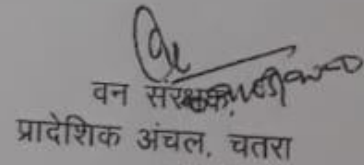 वन संरक्षक
प्रादेशिक अंचल, चतरा